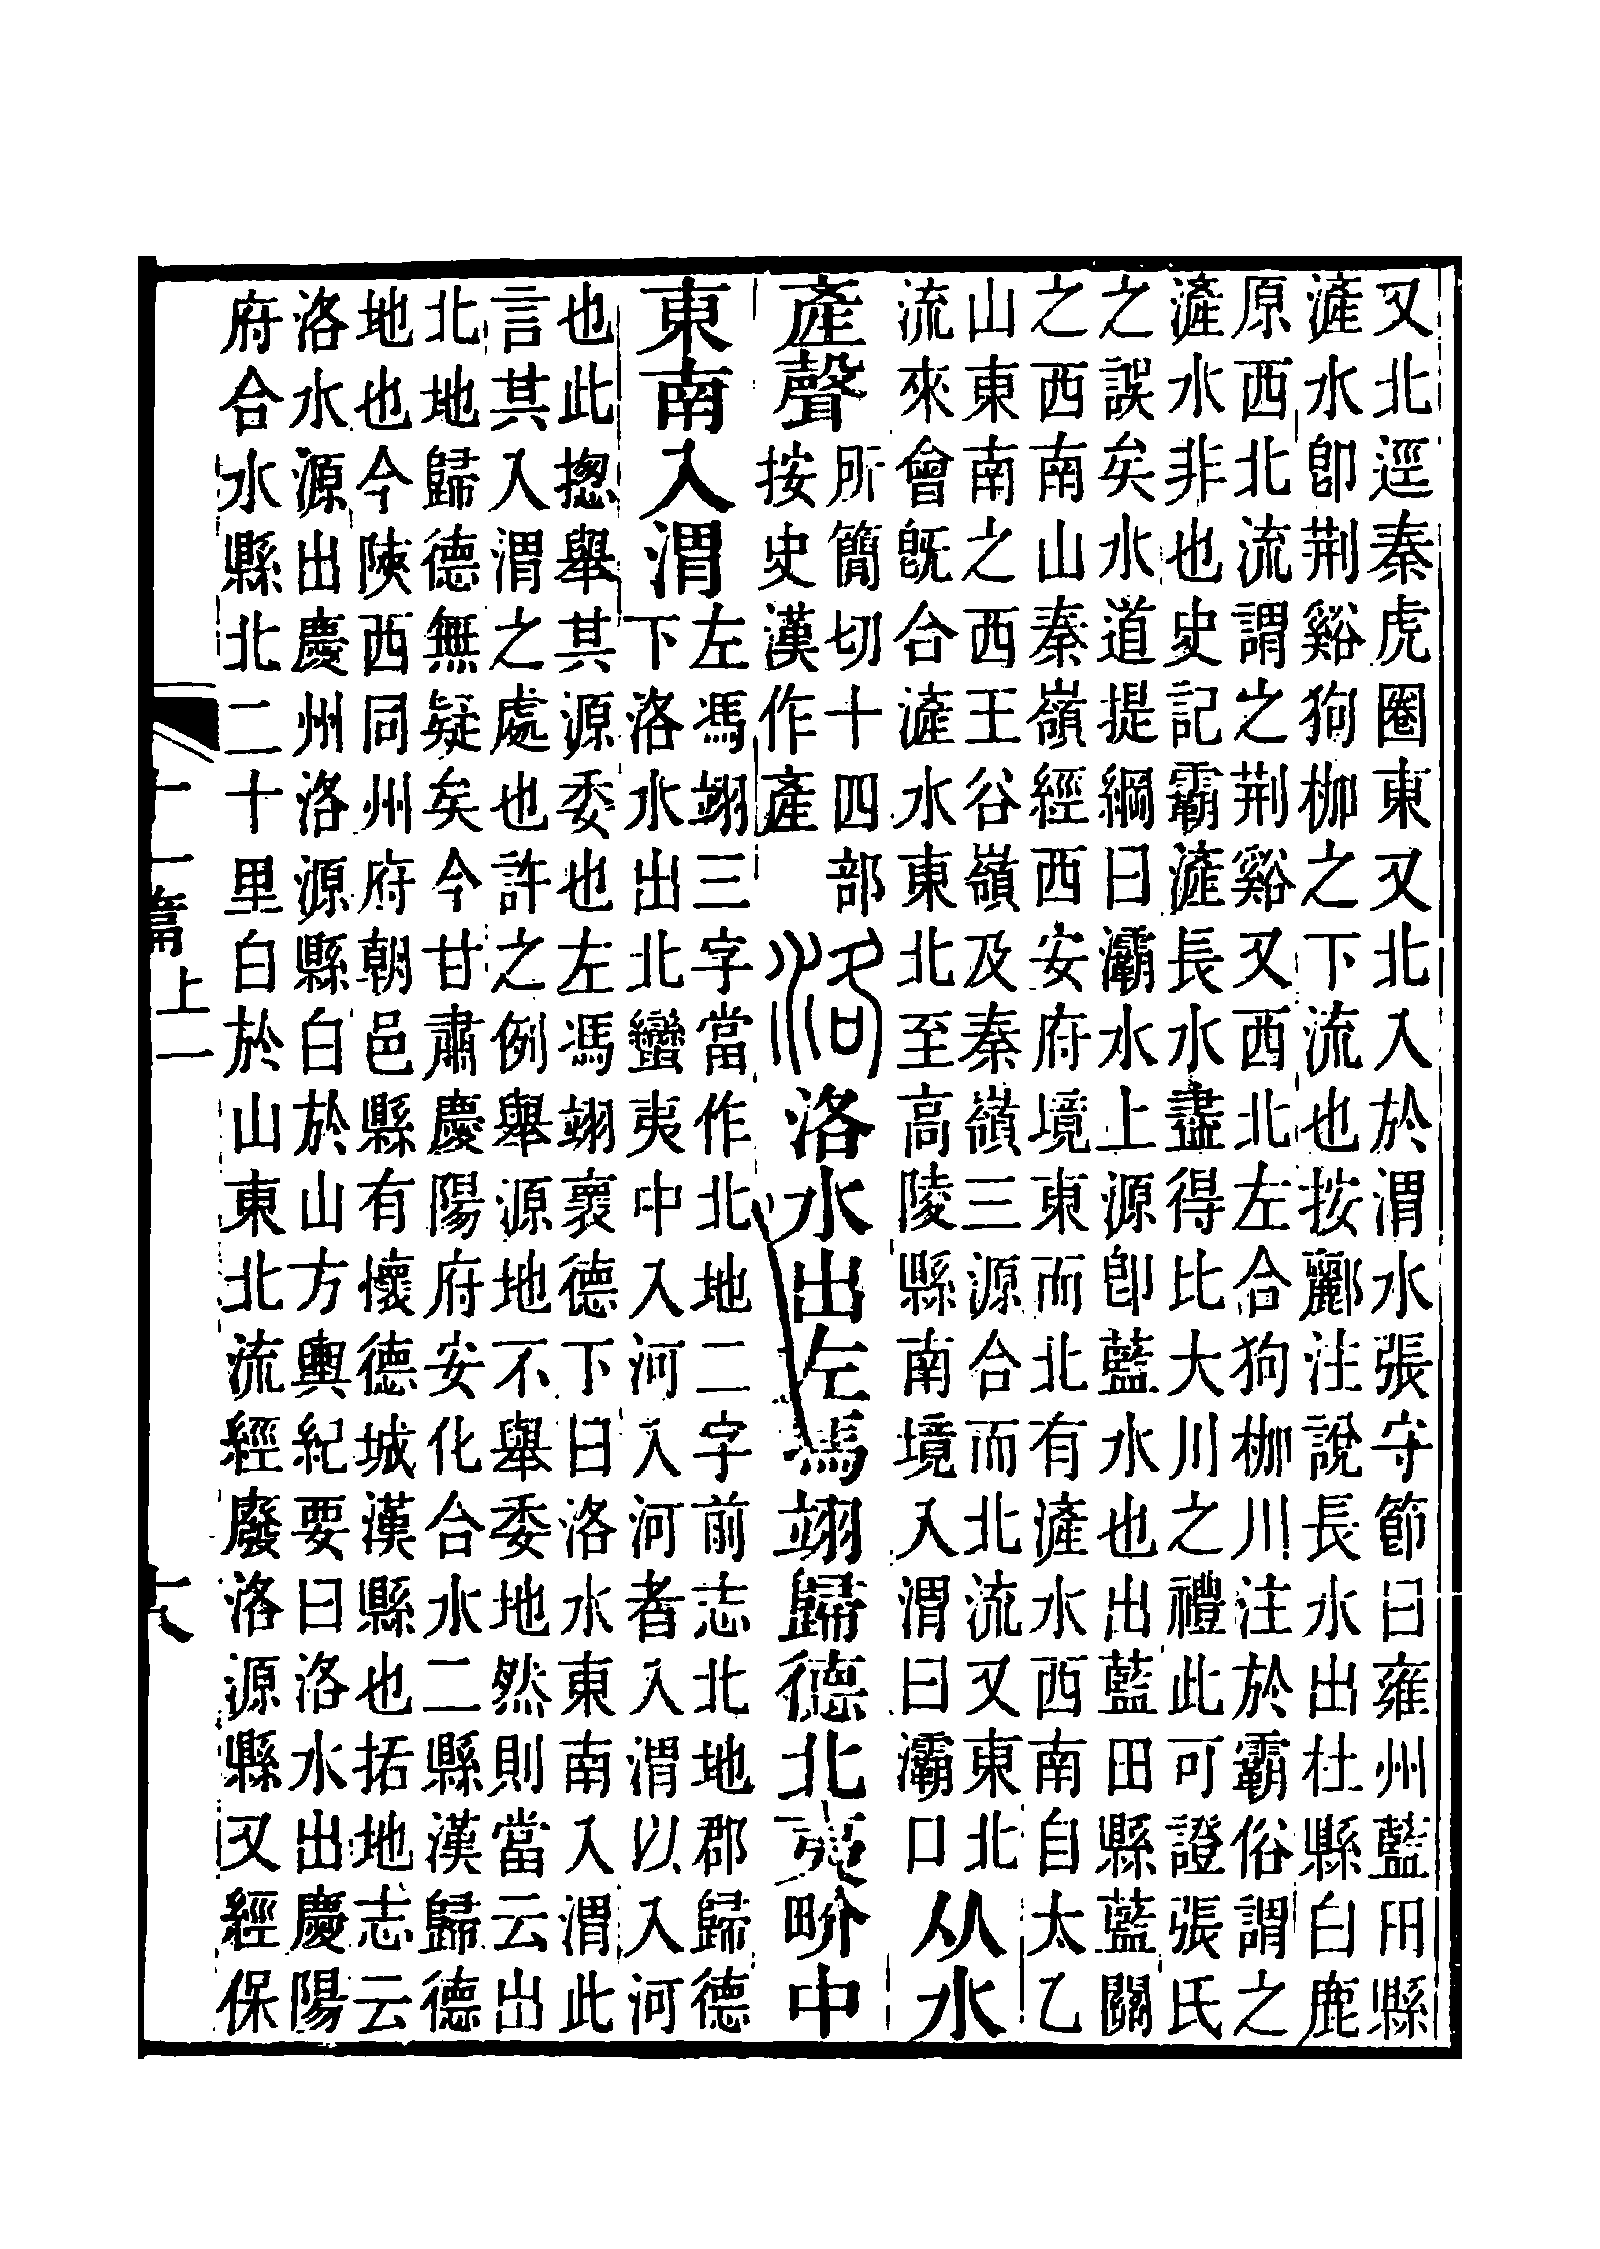 又北逕秦虎圈東又北入於渭水張守節曰雍州藍田縣
滻水卽荆谿狗枷之下流也按酈注說長水出杜縣白鹿
原西北流謂之荆谿又西北左合狗枷川注於霸俗謂之
滻水非也史記霸滻長水盡得比大川之禮此可證張氏
之誤矣水道提綱曰灞水上源卽藍水也出藍田縣藍關
之西南山秦嶺經西安府境東而北有滻水西南自太乙
山東南之西王谷嶺及秦嶺三源合而北流又東北
流來會旣合滻水東北至高陵縣南境入渭曰灞口
从水
產聲
所簡切十四部
按史漢作產
洛洛水出左馮翊歸德北夷畍中
東南入渭
左馮翊三字當作北地二字前志北地郡歸德
下洛水出北蠻夷中入河入河者入渭以入河
也此揔舉其源委也左馮翊褱德下曰洛水東南入渭此
言其入渭之處也許之例舉源地不舉委地然則當云出
北地歸德無疑矣今甘肅慶陽府安化合水二縣漢歸德
地也今陝西同州府朝邑縣有懷德城漢縣也拓地志云
洛水源出慶州洛源縣白於山方輿紀要曰洛水出慶陽
府合水縣北二十里白於山東北流經廢洛源縣又經保
十一篇上一